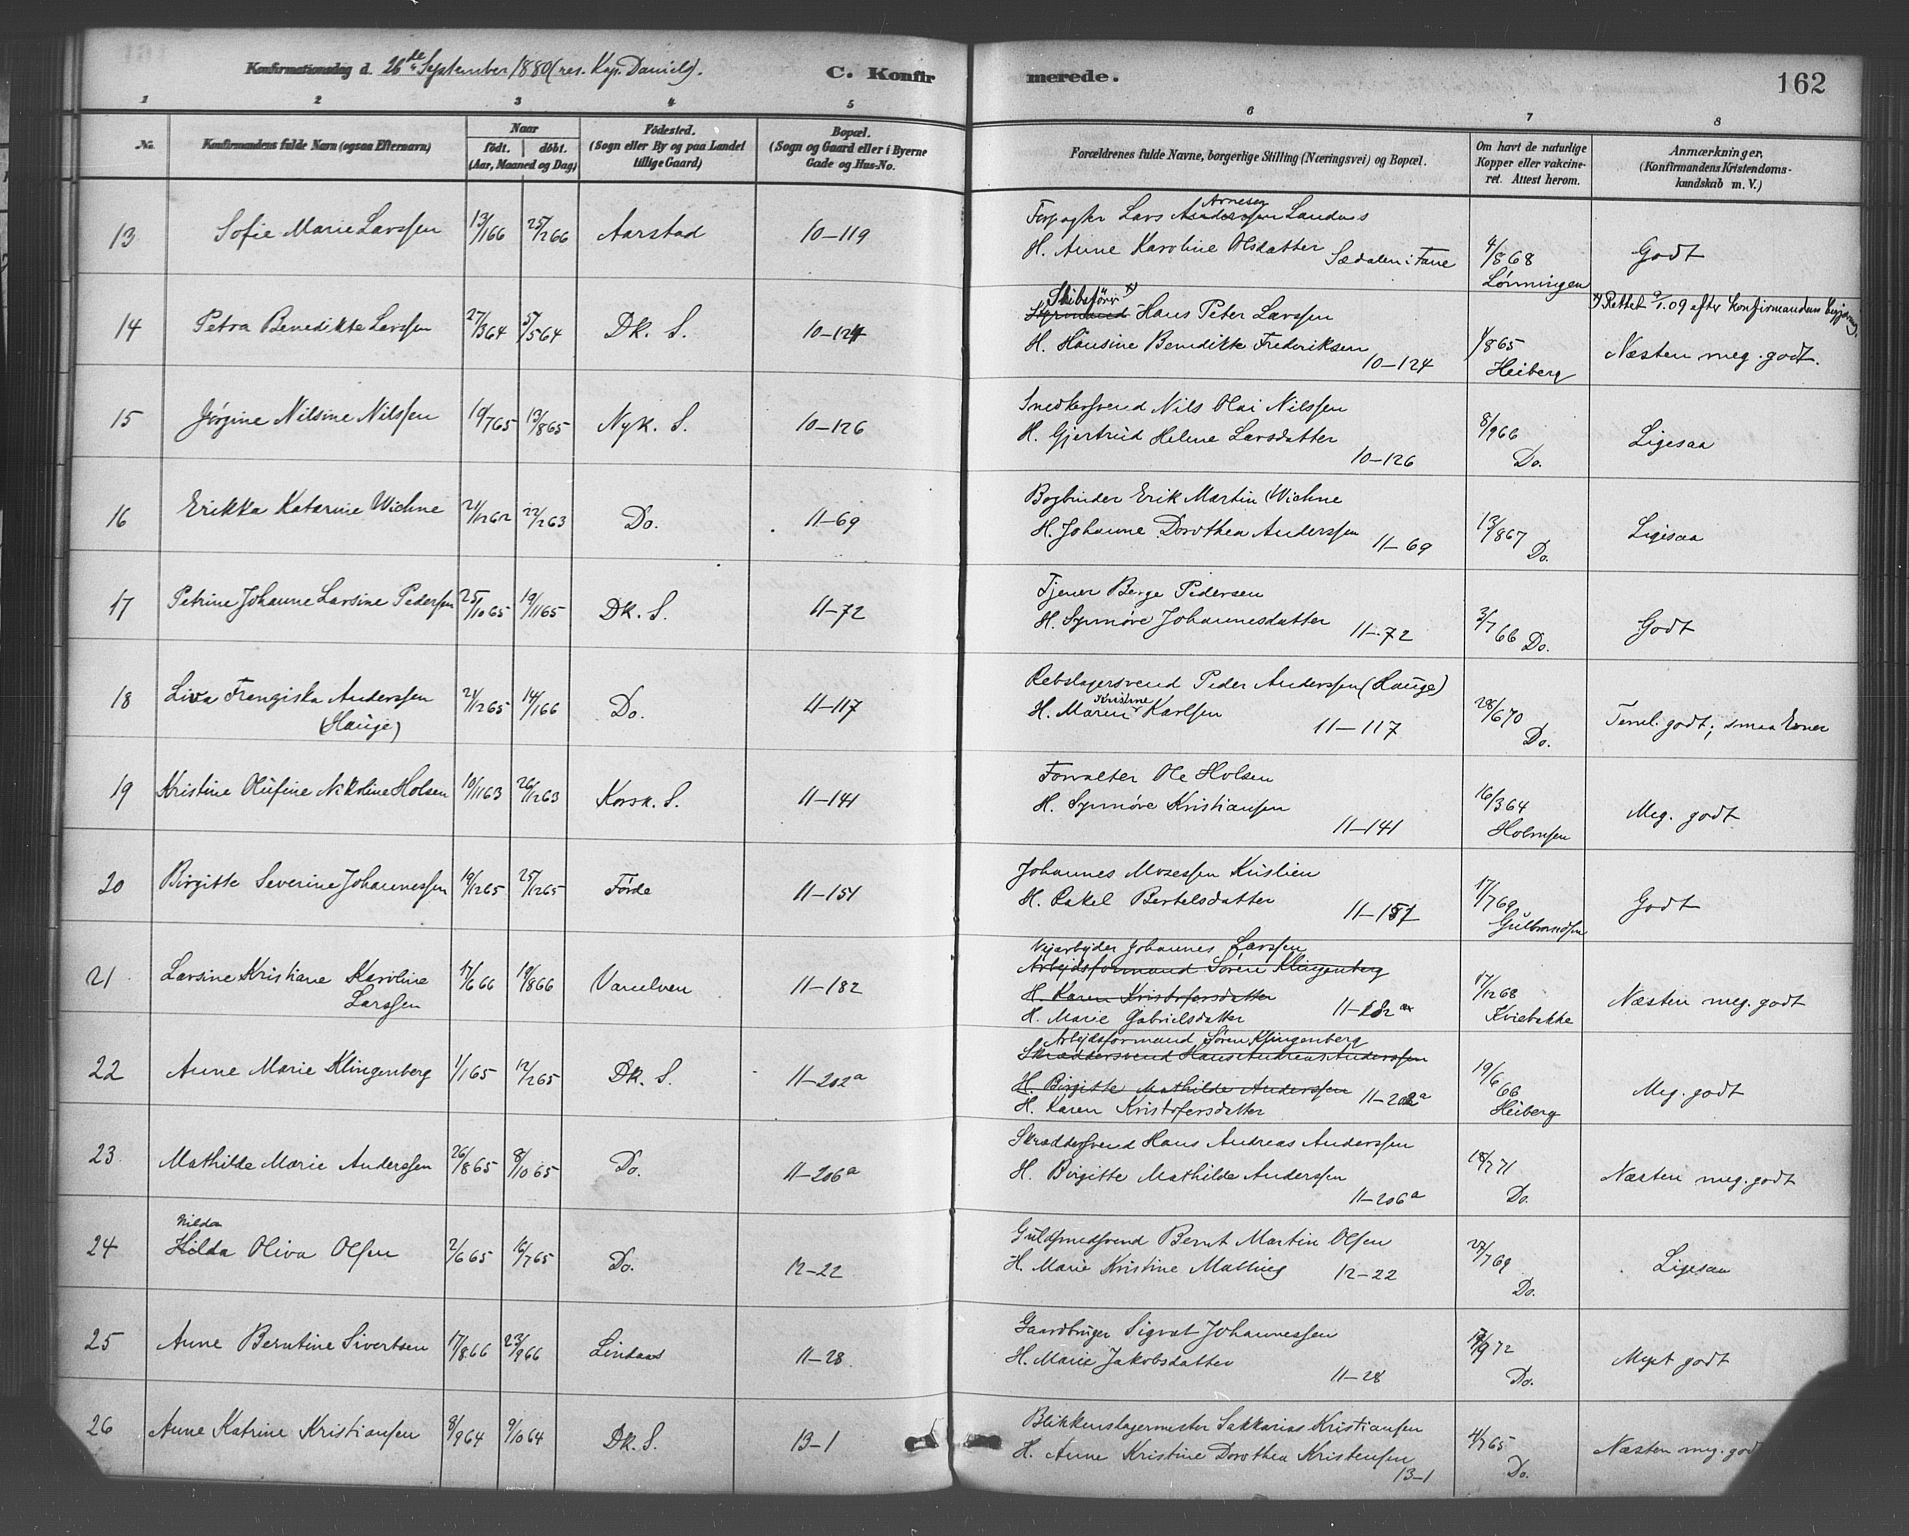 Konfirmationsdag d. 26de September 1880 (res. Kap. Daniels).
C. Konfirmerede.
162
1 2 3 4 5 6 7 8
No. Konfirmandens fulde Navn (ogsaa Efternavn) Naar født. døbt. (Aar, Maaned og Dag) Fødested. (Sogn eller By og paa Landet tillige Gaard) Bopæl. (Sogn og Gaard eller i Byerne Gade og Hus-No. Forældrenes fulde Navne, borgerlige Stilling (Næringsvei) og Bopæl. Om havt de naturlige Kopper eller vakcineret. Attest herom. Anmærkninger. (Konfirmandens Kristendomskundskab m. V.)
13 Sofie Marie Larssen 13/1 66 25/2 66 Aarstad 10-119
Forpagter Lars Arnesen Landaas
H. Anne Karoline Olsdatter Sædalen i Fane
4/8 68 Lønningen Godt
14 Petra Benedikte Larssen 27/3 64 5/5 64 Dk. S. 10-124
Skibsfører x) Hans Peter Larssen
H. Hansine Benedikte Frederiksen 10-124
1/8 65 Heiberg
x) Rettet 9/1.09 efter Konfirmandens begjæring.
Næsten meg. godt.
15 Jørgine Nilsine Nilssen 19/7 65 13/8 65 Nyk. S. 10-126
Snedkersvend Nils Olai Nilssen
H. Gjertrud Helene Larsdatter 10-126
8/9 66 Do. Ligesaa
16 Erikka Katarine Wiehne 21/12 62 22/2 63 Do. 11-69
Bogbinder Erik Martin Wiehne
H. Johanne Dorothea Anderssen 11-69
13/8 67 Do. Ligesaa
17 Petrine Johanne Larsine Pedersen 25/10 65 19/11 65 Dk. S. 11-72
Tjener Berge Pedersen
H. Synnøve Johannesdatter 11-72
3/7 66 Do. Godt
18 Liva Franziska Anderssen
(Hauge) 21/12 65 14/1 66 Do. 11-117
Rebslagersvend Peder Anderssen (Hauge)
H. Maren Kristine Karlsen 11-117
28/6 70 Do. Teml. godt; smaa Evner
19 Kristine Olufine Nikoline Holsen 10/11 63 26/12 63 Korsk. S. 11-141
Forvalter Ole Holsen
H. Synnøve Kristiansen 11-141
16/3 64 Holmsen Meg. godt
20 Birgitte Severine Johannessen 19/12 65 25/12 65 Førde 11-151
Johannes Mozessen
H. Rakel Bertelsdatter 11-151
17/7 69 Gulbrandsen Godt
21 Larsine Kristiane Karoline
Larssen 17/6 66 19/8 66 Vanelven 11-182
Veiarbeider Johannes Larssen
Arbeidsformand Søren Klingenberg
H. Karen Kristofersdatter
H. Marie Gabrielsdatter 11-182
17/12 68 Kviebakke Næsten meg. godt
22 Anne Marie Klingenberg 1/1 65 12/2 65 Dk. S. 11-202a
Arbejdsformand Søren Klingenberg
Skræddersvend Hans Andreas Anderssen
H. Birgitte Mathilde Anderssen 11-202a
H. Karen Kristofersdatter
19/6 66 Heiberg Meg. godt
23 Mathilde Marie Anderssen 26/8 65 8/10 65 Do. 11-206a
Skræddersvend Hans Andreas Anderssen
H. Birgitte Mathilde Anderssen
11-206a
18/7 71 Do. Næsten meg. godt
24 Hilda Oliva Olsen 2/6 65 16/7 65 Do. 12-22
Guldsmedsvend Bernt Martin Olsen
H. Marie Kristine Mathing 12-22
27/7 69 Do. Ligesaa
25 Anne Berntine Sivertsen 17/8 66 23/9 66 Lindaas 11-28
Gaardbruger Sigvat Johannessen
H. Marie Jakobsdatter 11-28
9/9 72 Do. Myet godt
26 Anne Katrine Kristiansen 8/9 64 9/10 64 Dk. S. 13-1
Blikkenslagermester Sakkarias Kristiansen
H. Anne Kristine Dorothea Kristensen
13-1
4/7 65 Do. Næsten meg. godt